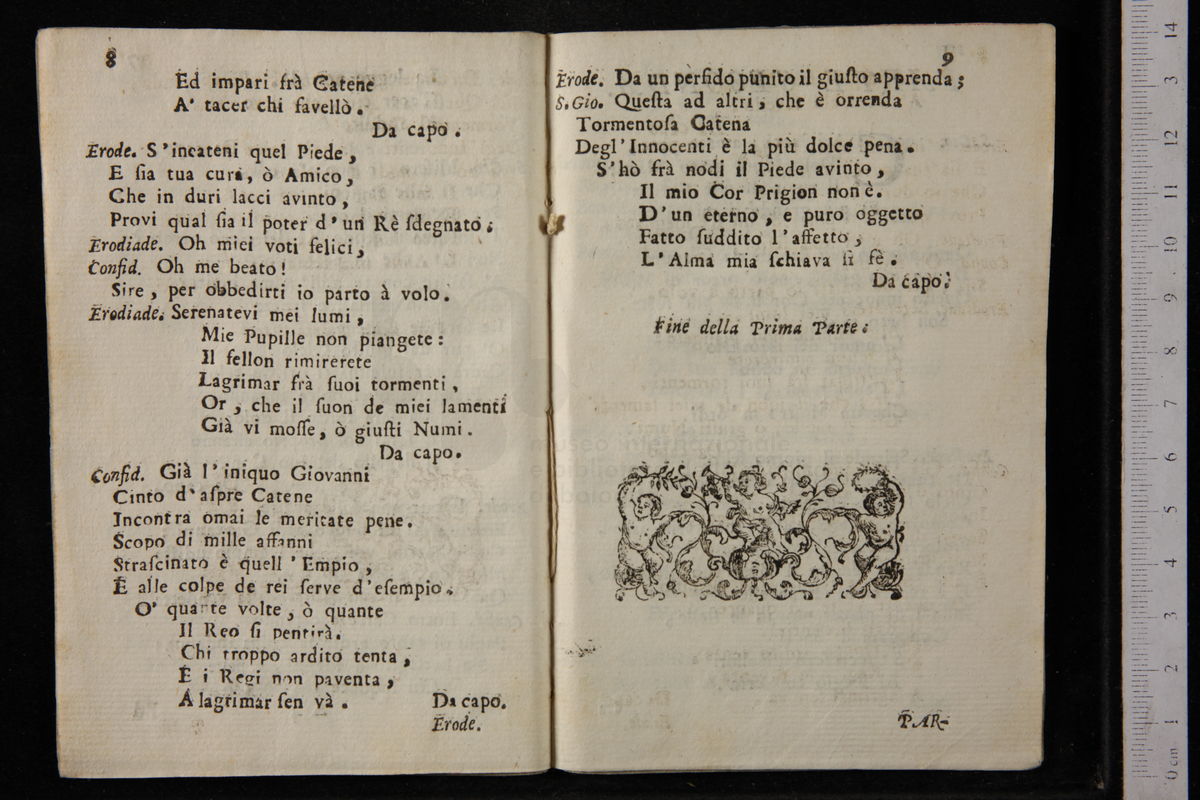 8
Ed impari frà Catene
A' tacer chi favellò.
Da capo.
Erode. S'incateni quel Piede,
E ſia tua cura, ò Amico,
Che in duri lacci avinto,
Provi qual ſia il poter d'un Rè ſdegnato;
Erodiade. Oh miei voti felici,
Confid. Oh me beato!
Sire, per obbedirti io parto à volo.
Erodiade. Serenatevi mei lumi,
Mie Pupille non piangete:
Il fellon rimirerete
Lagrimar frà ſuoi tormenti,
Or, che il ſuon de miei lamenti
Già vi moſſe, ò giuſti Numi.
Da capo.
Confid. Già l'iniquo Giovanni
Cinto d'aſpre Catene
Incontra omai le meritate pene.
Scopo di mille affanni
Straſcinato è quell'Empio,
E alle colpe de rei ſerve d'eſempio.
O' quante volte, ò quante
Il Reo ſi pentirà.
Chi troppo ardito tenta,
E i Regi non paventa,
A lagrimar ſen và. Da capo.
Erode.
9
Erode. Da un perfido punito il giuſto apprenda;
S. Gio. Queſta ad altri, che è orrenda
Tormentoſa Catena
Degl'Innocenti è la più dolce pena.
S'hò frà nodi il Piede avinto,
Il mio Cor Prigion non è.
D'un eterno, e puro oggetto
Fatto ſuddito l'affetto,
L'Alma mia ſchiava ſi fè.
Da capo.
Fine della Prima Parte.
PAR-
14
3
12
11
10
9
8
7
6
5
4
3
2
1
0 cm